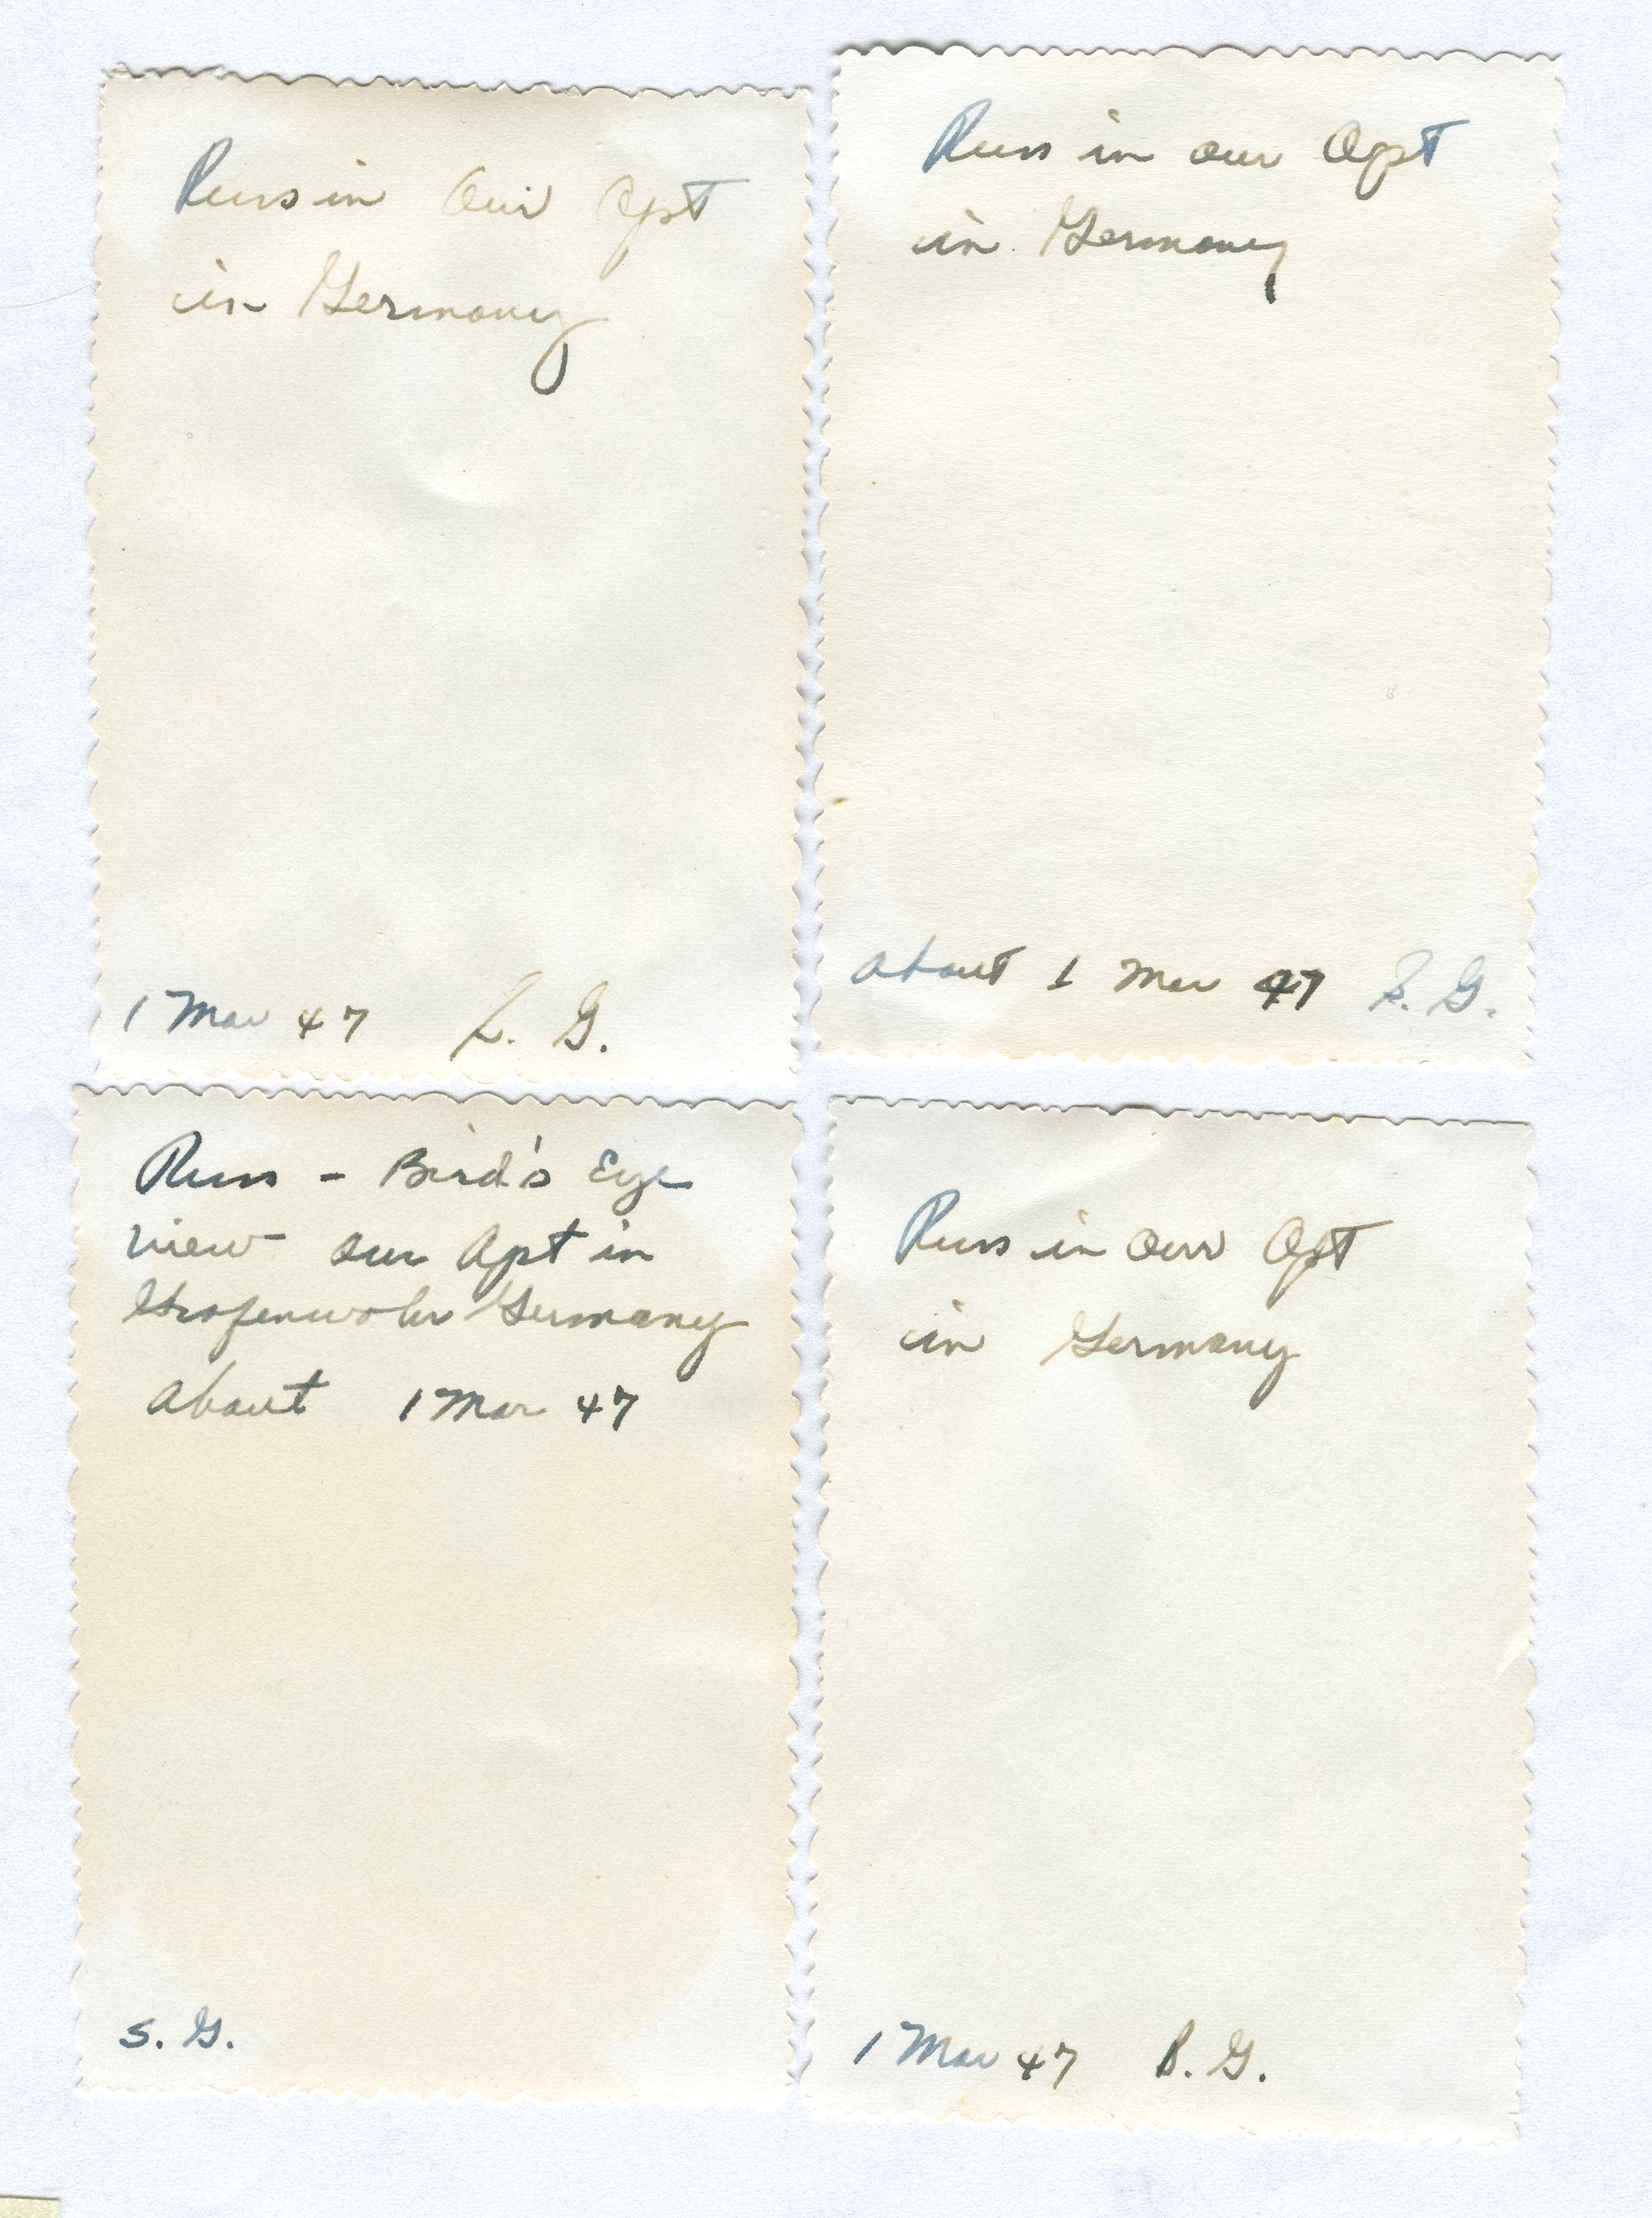 Russ in Our Apt
in Germany
1 Mar 47 L. G.
Russ in our Apt
in Germany
about 1 Mar 47 S. G.
Russ - Bird's Eye
view our Apt in
Grafenwohr Germany
about 1 Mar 47
S. G.
Russ in Our Apt
in Germany
1 Mar 47 B. G.